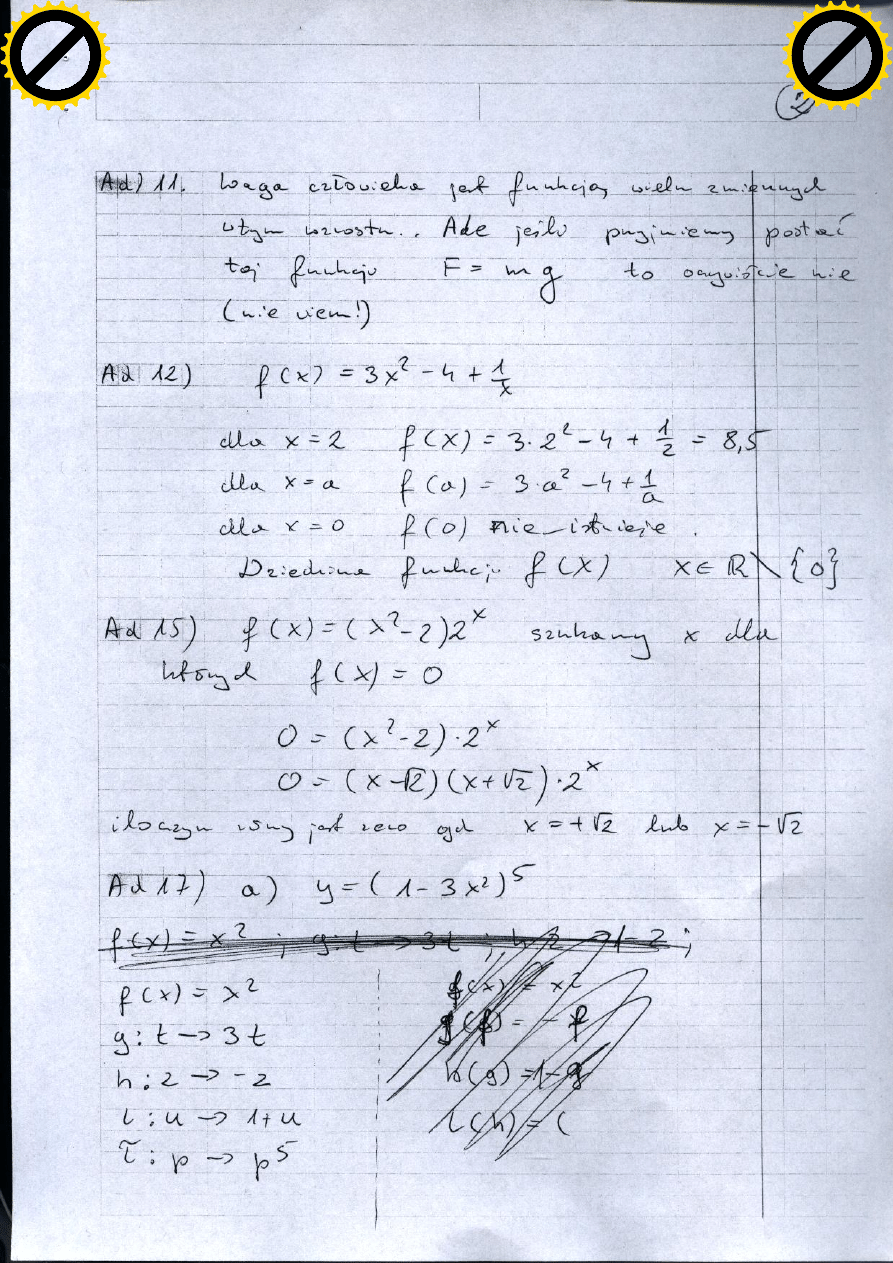 2
Ad) 11. Waga człowieka jest funkcją wielu zmiennych
w tym wzrostu.. Ale jeśli przyjmiemy postać
tej funkcji F = mg to oczywiście nie
(nie wiem!)
Ad 12) f(x) = 3x² - 4 + 1/x
dla x = 2 f(x) = 3·2² - 4 + 1/2 = 8,5
dla x = a f(a) = 3·a² - 4 + 1/a
dla x = 0 f(0) nie istnieje.
Dziedzina funkcji f(x) x ∈ ℝ \ {0}
Ad 15) f(x) = (x² - 2)2ˣ szukamy x dla
których f(x) = 0
0 = (x² - 2)·2ˣ
0 = (x - √2)(x + √2)·2ˣ
iloczyn równy jest zero gd x = +√2 lub x = -√2
Ad 17) a) y = (1 - 3x²)⁵
f(x) = x² ; g: t → 3t ; h:
f(x) = x² f(x) = x²
g: t → 3t g(f) = - f
h: z → -z h(g) = 1 - g
l: u → 1+u l(h) = (
τ: p → p⁵